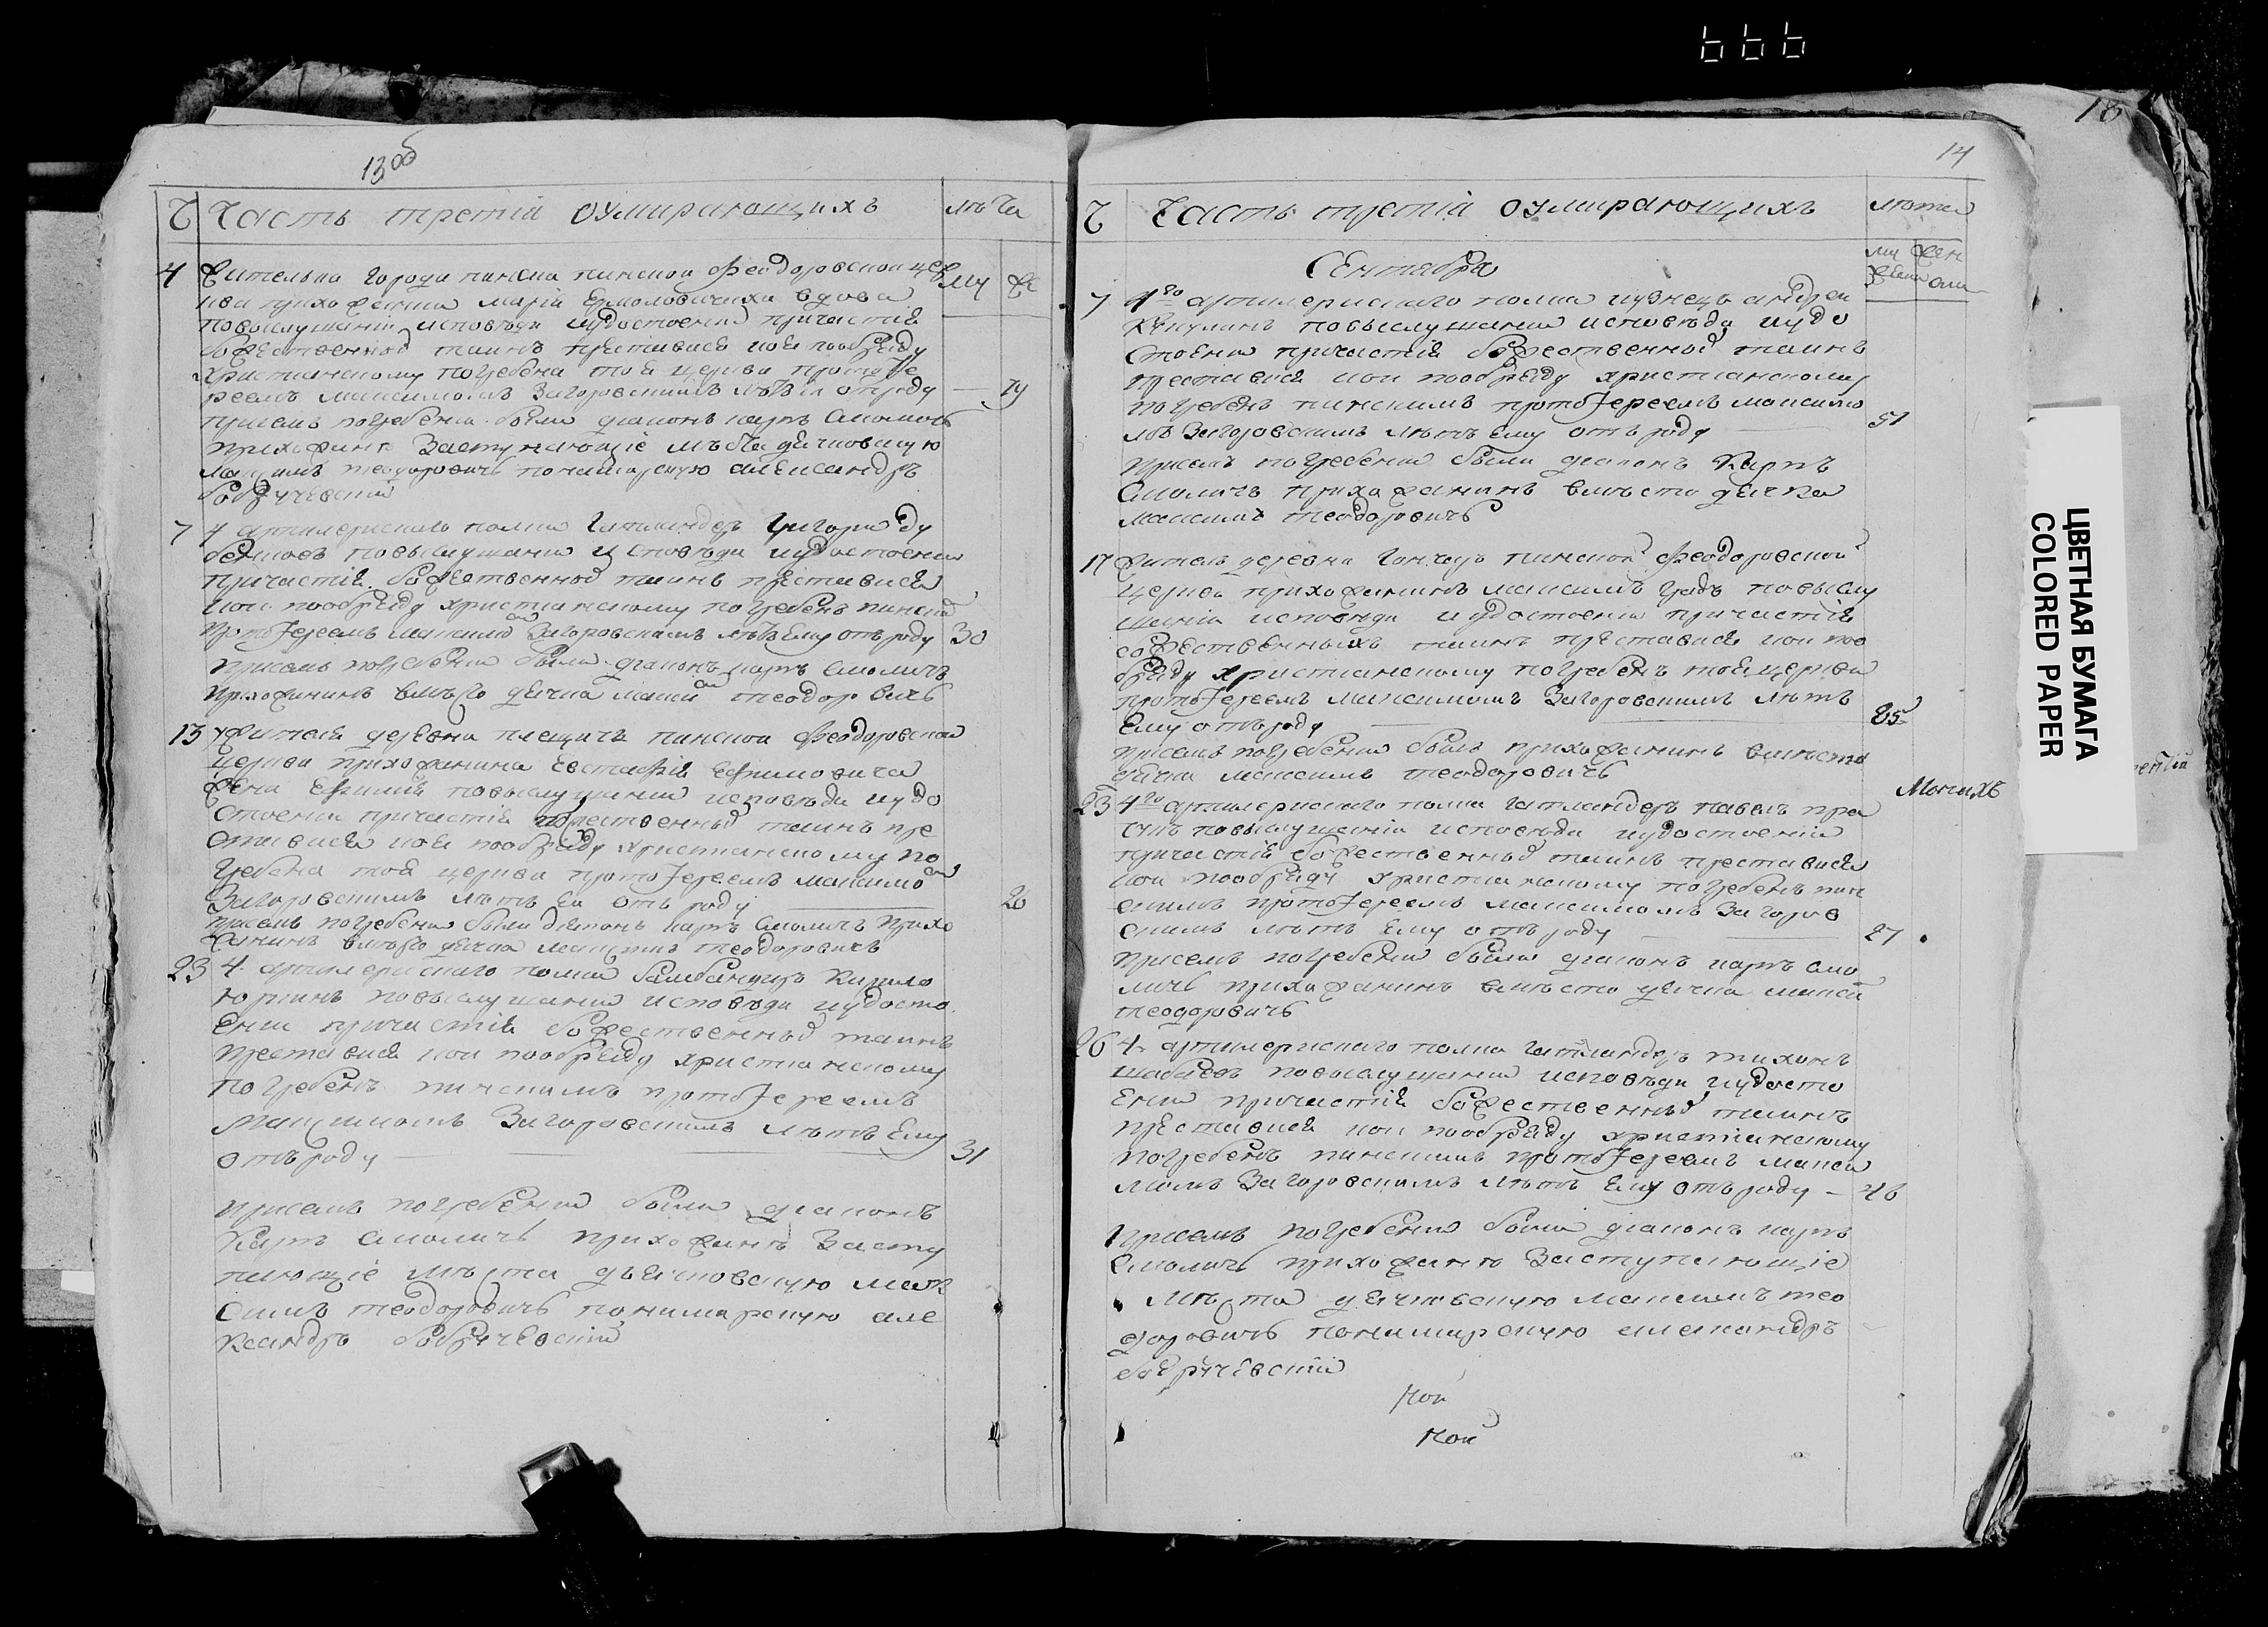 666
18
13 об
Ч Часть третіа оумирающихъ лѣта
му же
4 жителька города пинска пинской феодоровской цер
кви прихожанка марія Ермоловичиха вдова
повыслушаніи исповѣди иудостоеніи причастія
божественныхъ таинъ преставися коя пообряду
христианскому погребена тоя церкви протоіе
реемъ максимомъ Загоровскимъ лѣтъ ея отроду — 79
присемъ погребеніи были діаконъ карпъ смоличъ
прихожане Заступающіе мѣста дячковскую
максимъ теодоровичъ понамарскую александръ
бобричевский
7 4 артилерискаго полка гатлангеръ григори ду
бениковъ повыслушании исповѣди иудостоении
причастія божественныхъ таинъ преставися
кои пообряду христианскому погребенъ пинскимъ
протоіереемъ максимомъ Загоровскимъ лѣтъ ему отъ роду 30
присемъ погребении были діаконъ карпъ смоличъ
прихожанинъ вмѣсто дячка максимъ теодоровичъ
13 жителя деревни плещичъ пинской феодоровской
церкви прихожанина Евстафія Ефимовича
жена Ефимия повыслушании исповѣди иудо
стоении причастія божественныхъ таинъ пре
ставися коя пообряду христианскому по
гребена тоя церкви протоіереемъ максимомъ
Загоровскимъ лѣтъ Ея отъ роду 20
присемъ погребении были діаконъ карпъ смоличъ прихо
жанинъ вмѣсто дячка максимъ теодоровичъ
23 4 артилерискаго полка бамбандиръ Кирило
юркинъ повыслушании исповѣди иудосто
Ении причастія божественныхъ таинъ
преставися кои пообряду христианскому
погребенъ пинскимъ протоіереемъ
максимомъ Загоровскимъ лѣтъ Ему
отъ роду 31
присемъ погребении были діаконъ
Карпъ смоличъ прихожане Засту
пающіе мѣста дьячковскую мак
симъ теодоровичъ понамарскую але
ксандръ бобричевский
14
Ч Часть третіа оумирающихъ лѣта
Сентабра
7 4го артилерискаго полка кузнецъ андреи
повыслушании исповѣди иудо
стоении причастія божественныхъ таинъ
преставися кои пообряду христианскому
погребенъ пинскимъ протоіереемъ максимо
мъ Загоровскимъ лѣтъ Ему отъ роду 51
присемъ погребении были діаконъ Карпъ
Смоличъ прихожанинъ вмѣсто дячка
максимъ теодоровичъ
17 житель деревни гончаръ пинской феодоровской
церкви прихожанинъ максимъ повыслу
шании исповѣди иудостоении причастія
божественныхъ таинъ преставися кои поо
бряду христианскому погребенъ тоя церкви
протоіереемъ максимомъ Загоровскимъ лѣтъ
Ему отъ роду 85
присемъ погребении были прихожанинъ вмѣсто
дячка максимъ теодоровичъ
23 4го артилерискаго полка гатлангеръ павелъ
повыслушании исповѣди иудостоении
причастія божественныхъ таинъ преставися
кои пообряду христианскому погребенъ пин
скимъ протоіереемъ максимомъ Загоров
скимъ лѣтъ Ему отъ роду 27
присемъ погребении были діаконъ карпъ смо
личъ прихожанинъ вмѣсто дячка максимъ
теодоровичъ
26 4 артилерискаго полка гатлангеръ тихонъ
повыслушании исповѣди иудосто
Ении причастія божественныхъ таинъ
преставися кои пообряду христианскому
погребенъ пинскимъ протоіереемъ макси
момъ Загоровскимъ лѣтъ Ему отъ роду — 46
присемъ погребении были діаконъ карпъ
Смоличъ прихожане Заступающіе
мѣста дячковскую максимъ тео
доровичъ понамарскую александръ
бобричевский
Кои
Кои
ЦВЕТНАЯ БУМАГА
COLORED PAPER